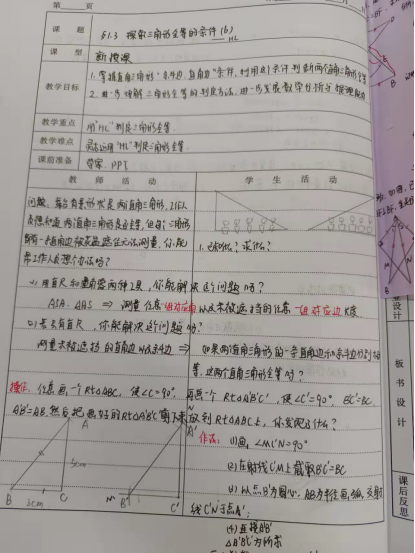 第 页
课 题 §1.3 探索三角形全等的条件(6)
HL
课 型 新授课
教学目标 1. 掌握直角三角形"斜边、直角边"条件,利用这个条件判断两个直角三角形全等
2. 进一步理解三角形全等的判定方法,进一步发展数学分析与推理能力
教学重点 用"HL"判定三角形全等.
教学难点 灵活运用"HL"判定三角形全等.
课前准备 学案、PPT
教 师 活 动 学 生 活 动
问题:舞台背景形状是两直角三角形,工作人
员想知道两直角三角形是否全等,但每个三角形
都有一直角边被花盆遮住无法测量,你能
帮工作人员想个办法吗?
1. 已知什么?求什么?
(1)用直尺和量角器两种工具,你能解决这个问题吗?
ASA、AAS ⇒ 测量任意一组对应角以及未被遮挡的任意一组对应边长度
(2)若只有直尺,你能解决这个问题吗?
测量未被遮挡的直角边以及斜边 ⇒ 如果两直角三角形的一条直角边和斜边分别相
等,这两个直角三角形全等吗?
操作:任意画一个Rt△ABC,使∠C=90°,再画一个Rt△A'B'C',使∠C'=90°,B'C'=BC,
A'B'=AB,然后把画好的Rt△A'B'C'剪下来放到Rt△ABC上,你发现了什么?
A
5cm
B 3cm C
N
A'
M B' C'
作法:(1)画∠MC'N=90°
(2)在射线C'M上截取B'C'=BC
(3)以点B'为圆心,AB为半径画弧,交射
线C'N于点A'
(4)连接A'B'
△A'B'C'为所求
板书设计
课后反思